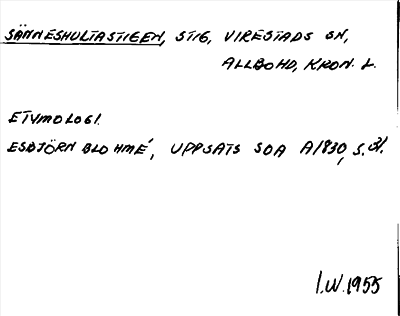 SÄNNESHULTASTIGEN, STIG, VIRESTADS SN,
ALLBO HD, KRON. L.
ETYMOLOGI.
ESBJÖRN BLOHMÉ, UPPSATS SOA A1830, S. 31.
I.W. 1955